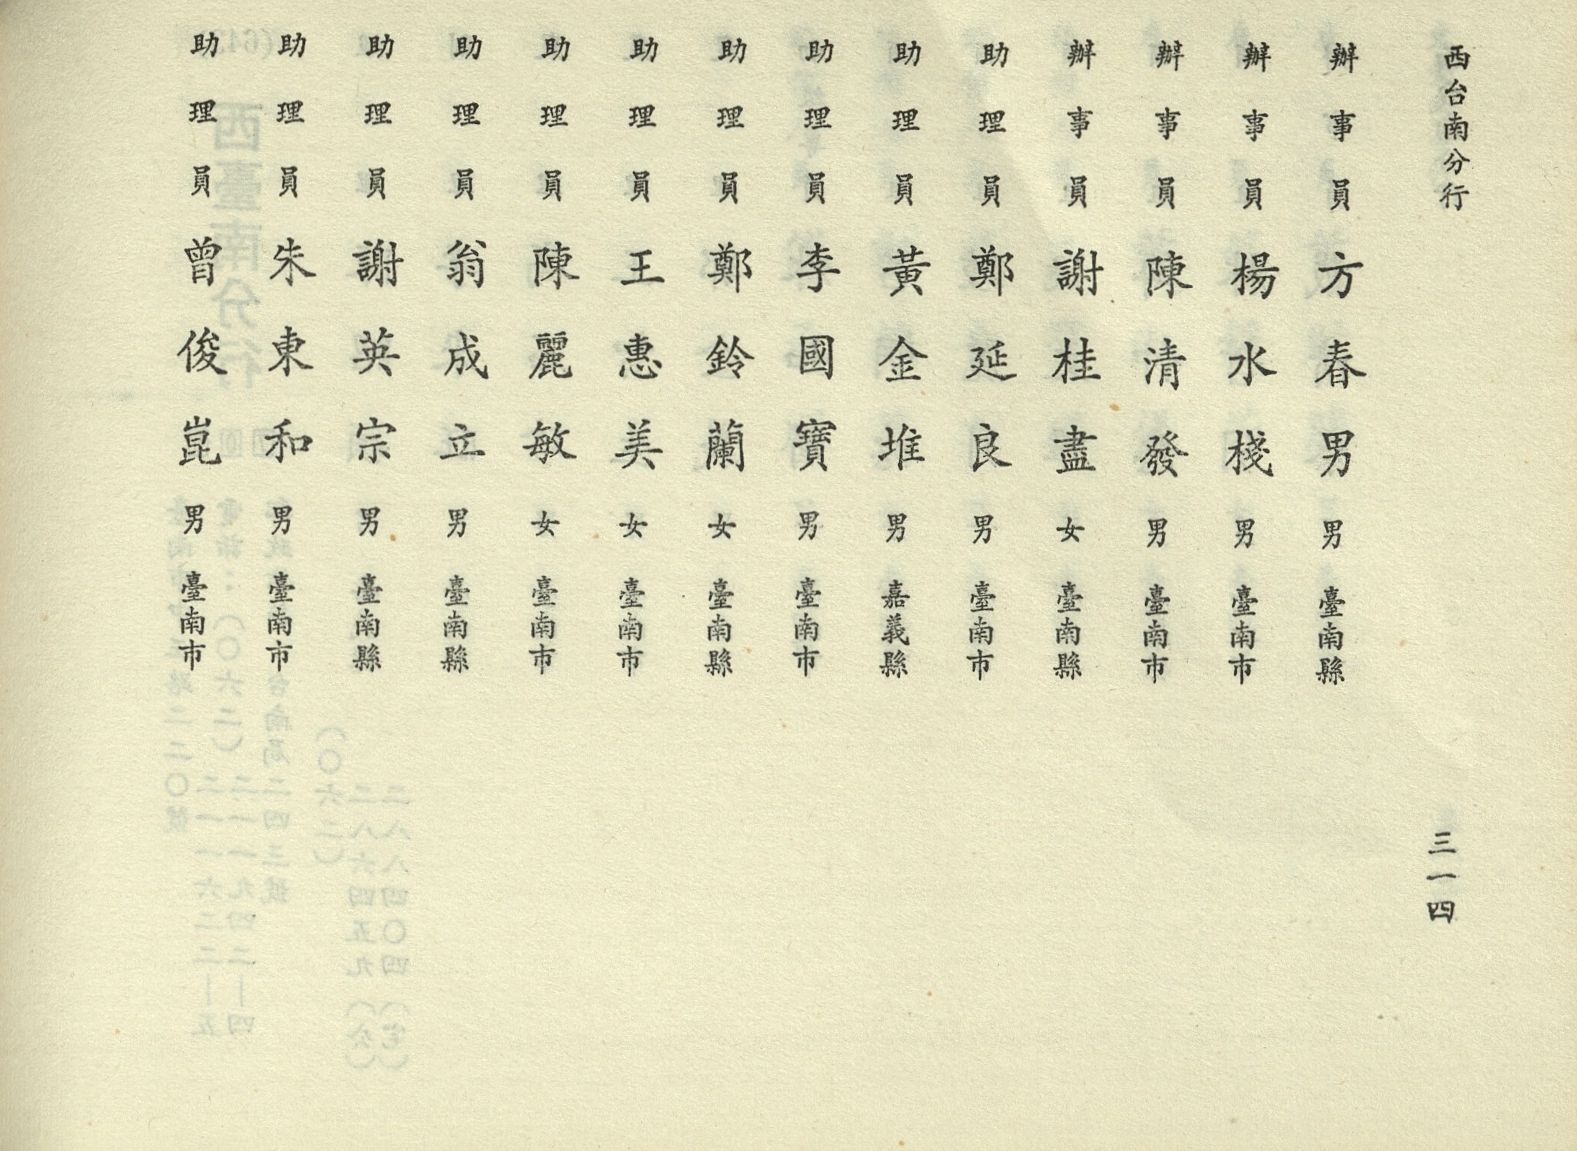 西台南分行
三一四
辦事員方春男男臺南縣
辦事員楊水棧男臺南市
辦事員陳清發男臺南市
辦事員謝桂盡女臺南縣
助理員鄭延良男臺南市
助理員黃金堆男嘉義縣
助理員李國寶男臺南市
助理員鄭鈴蘭女臺南縣
助理員王惠美女臺南市
助理員陳麗敏女臺南市
助理員翁成立男臺南縣
助理員謝英宗男臺南縣
助理員朱東和男臺南市
助理員曾俊崑男臺南市